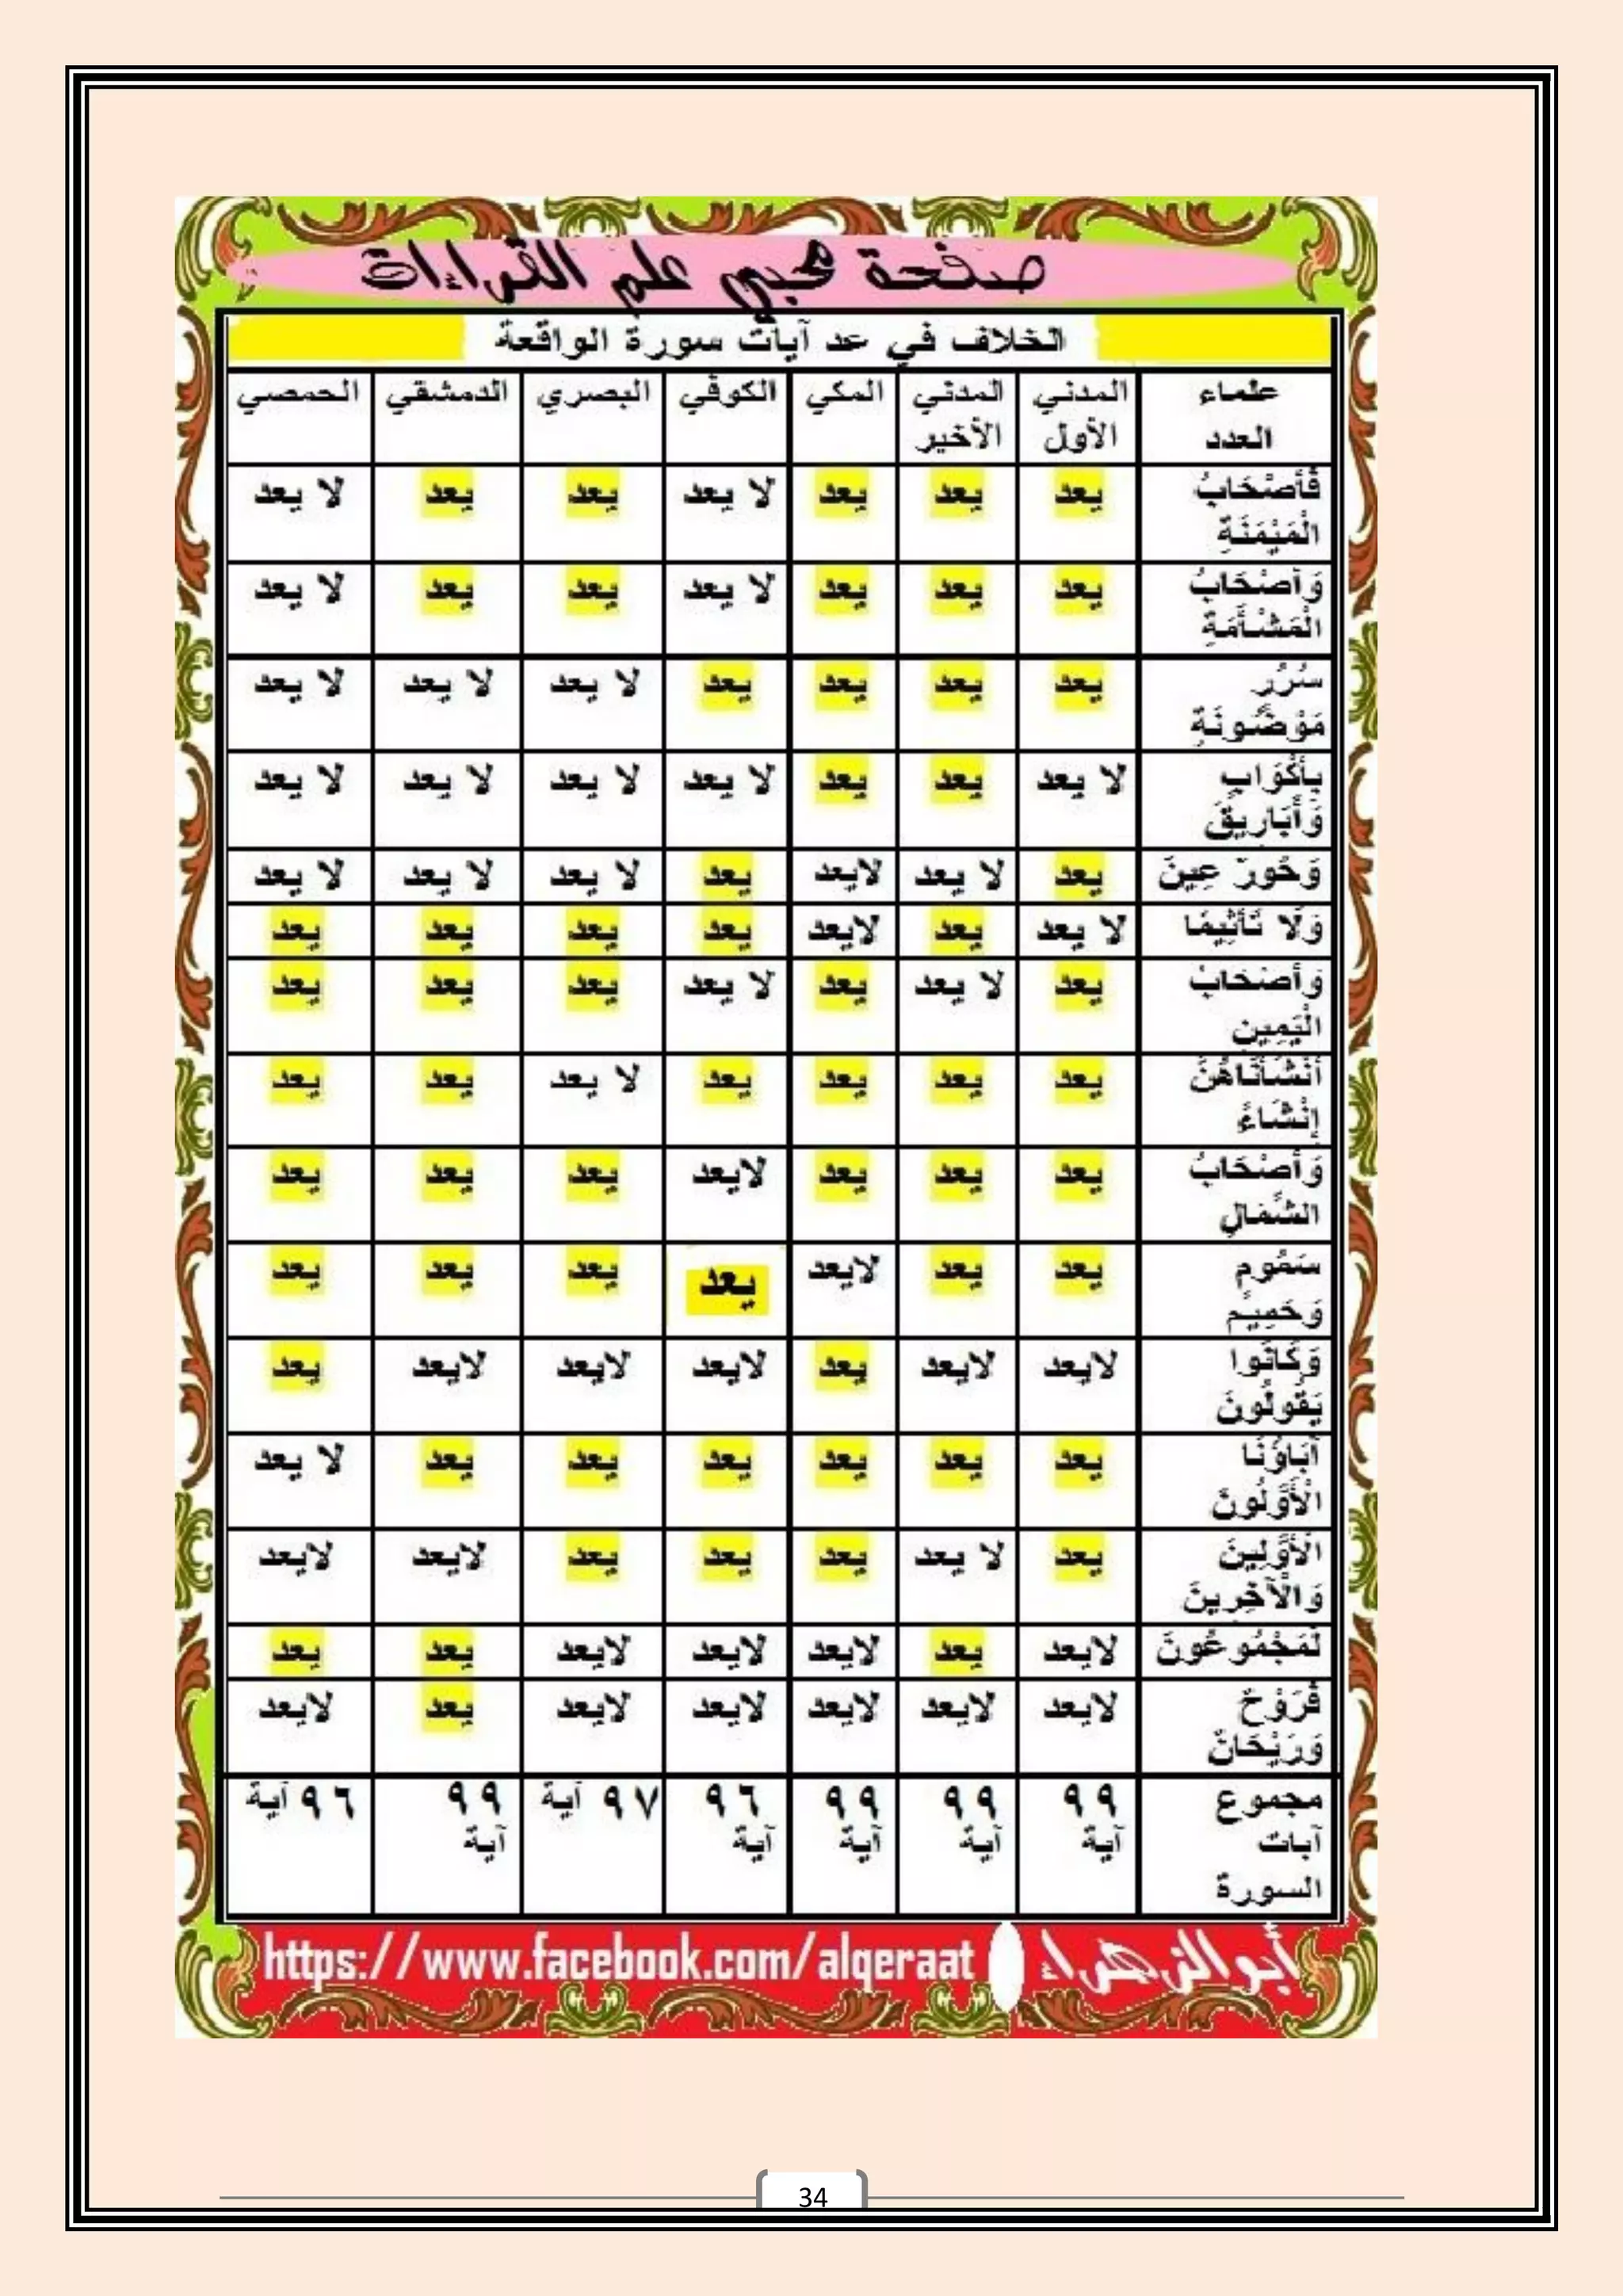 صفحة محبي علم القراءات
الخلاف في عد آيات سورة الواقعة
علماء العدد | المدني الأول | المدني الأخير | المكي | الكوفي | البصري | الدمشقي | الحمصي
فَأَصْحَابُ الْمَيْمَنَةِ | يعد | يعد | يعد | لا يعد | يعد | يعد | لا يعد
وَأَصْحَابُ الْمَشْأَمَةِ | يعد | يعد | يعد | لا يعد | يعد | يعد | لا يعد
سُرُرٍ مَوْضُونَةٍ | يعد | يعد | يعد | يعد | لا يعد | لا يعد | لا يعد
بِأَكْوَابٍ وَأَبَارِيقَ | لا يعد | يعد | يعد | لا يعد | لا يعد | لا يعد | لا يعد
وَحُورٌ عِينٌ | يعد | لا يعد | لايعد | يعد | لا يعد | لا يعد | لا يعد
وَلَا تَأْثِيمًا | لا يعد | يعد | لايعد | يعد | يعد | يعد | يعد
وَأَصْحَابُ الْيَمِينِ | يعد | لا يعد | يعد | لا يعد | يعد | يعد | يعد
أَنْشَأْنَاهُنَّ إِنْشَاءً | يعد | يعد | يعد | يعد | لا يعد | يعد | يعد
وَأَصْحَابُ الشِّمَالِ | يعد | يعد | يعد | لايعد | يعد | يعد | يعد
سَمُومٍ وَحَمِيمٍ | يعد | يعد | لايعد | يعد | يعد | يعد | يعد
وَكَانُوا يَقُولُونَ | لايعد | لايعد | يعد | لايعد | لايعد | لايعد | يعد
آبَاؤُنَا الْأَوَّلُونَ | يعد | يعد | يعد | يعد | يعد | يعد | لا يعد
الْأَوَّلِينَ وَالْآخِرِينَ | يعد | لا يعد | يعد | يعد | يعد | لايعد | لايعد
لَمَجْمُوعُونَ | لايعد | يعد | لايعد | لايعد | لايعد | يعد | يعد
فَرَوْحٌ وَرَيْحَانٌ | لايعد | لايعد | لايعد | لايعد | لايعد | يعد | لايعد
مجموع آيات السورة | ٩٩ آية | ٩٩ آية | ٩٩ آية | ٩٦ آية | ٩٧ آية | ٩٩ آية | ٩٦ آية
أبو الزهراء https://www.facebook.com/alqeraat
34